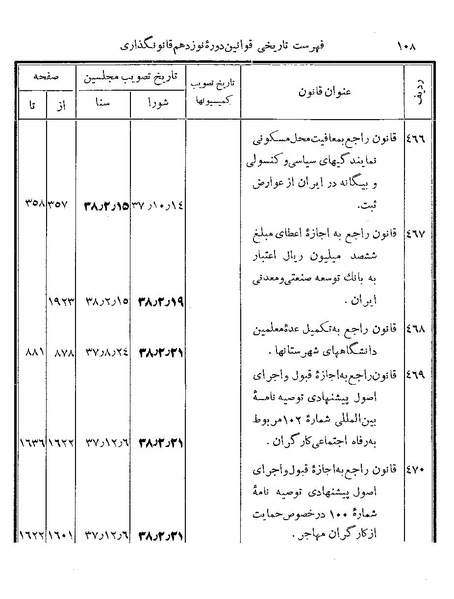 ۱۰۸ فهرست تاریخی قوانین دورهٔ نوزدهم قانونگذاری
ردیف عنوان قانون تاریخ تصویب کمیسیونها تاریخ تصویب مجلسین صفحه
شورا سنا از تا
۴۶۶ قانون راجع بمعافیت محل مسکونی
نمایندگیهای سیاسی و کنسولی
و بیگانه در ایران از عوارض
ثبت. ۳۷٫۱۰٫۱۴ ۳۸٫۲٫۱۵ ۳۵۷ ۳۵۸
۴۶۷ قانون راجع به اجازهٔ اعطای مبلغ
ششصد میلیون ریال اعتبار
به بانک توسعه صنعتی و معدنی
ایران . ۳۸٫۲٫۱۹ ۳۸٫۲٫۱۵ ۱۹۲۳
۴۶۸ قانون راجع به تکمیل عدهٔ معلمین
دانشگاههای شهرستانها . ۳۸٫۲٫۲۱ ۳۷٫۸٫۲۴ ۸۷۸ ۸۸۱
۴۶۹ قانون راجع به اجازهٔ قبول و اجرای
اصول پیشنهادی توصیه نامهٔ
بین‌المللی شمارهٔ ۱۰۲ مربوط
به رفاه اجتماعی کارگران . ۳۸٫۲٫۲۱ ۳۷٫۱۲٫۶ ۱۶۲۲ ۱۶۳۶
۴۷۰ قانون راجع به اجازهٔ قبول و اجرای
اصول پیشنهادی توصیه نامهٔ
شمارهٔ ۱۰۰ در خصوص حمایت
از کارگران مهاجر . ۳۸٫۲٫۲۱ ۳۷٫۱۲٫۶ ۱۶۰۱ ۱۶۲۲